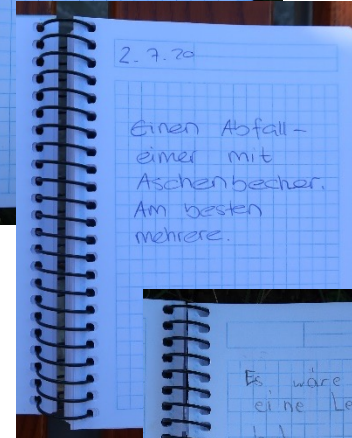 2.7.20
Einen Abfall-
eimer mit
Aschenbecher.
Am besten
mehrere.
Es wäre
eine Le